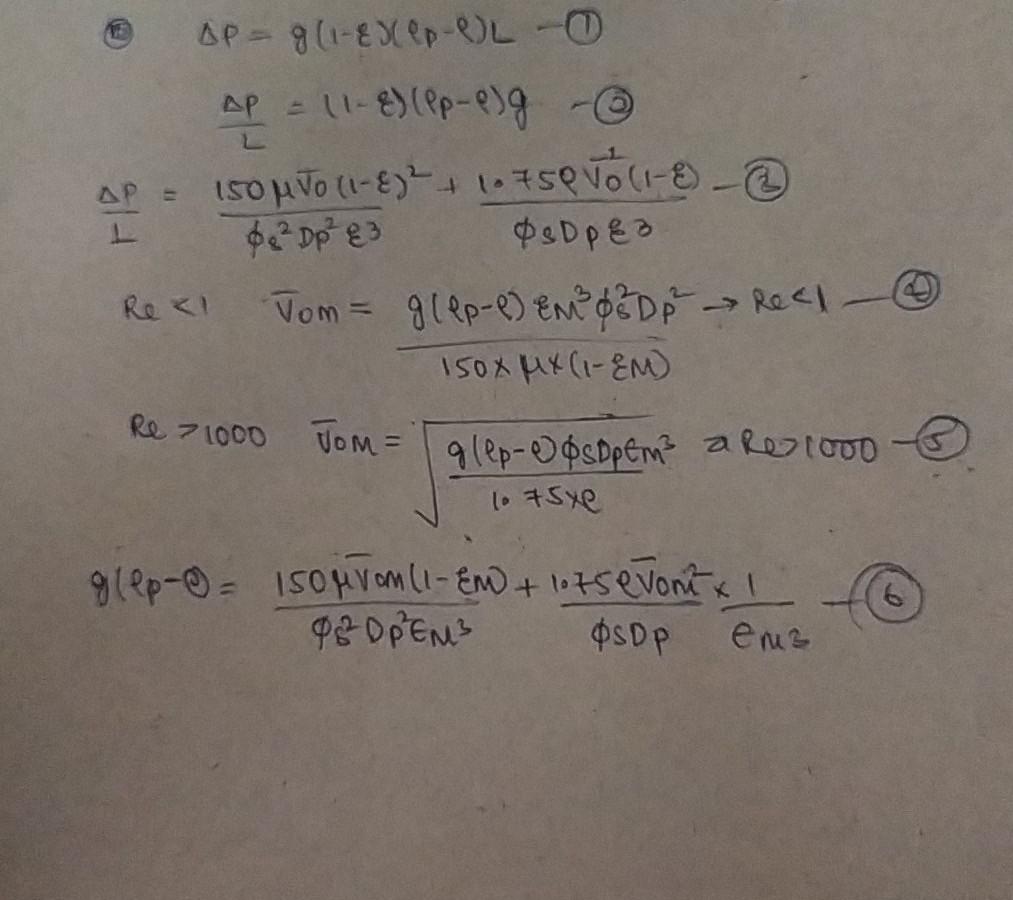 ② ΔP = g(1-ε)(ρp-ρ)L - ①
ΔP/L = (1-ε)(ρp-ρ)g - ②
ΔP/L = 150μV̄o(1-ε)²/φs²Dp²ε3 + 1.75ρV̄o¹(1-ε)/φsDpε3 - ③
Re<1 V̄om = g(ρp-ρ)εM³φs²Dp²/150×μ×(1-εM) → Re<1 - ④
Re>1000 V̄om = √(g(ρp-ρ)φsDpεm³/1.75×ρ) → Re>1000 - ⑤
g(ρp-ρ) = 150μV̄om(1-εM)/φs²Dp²εM³ + 1.75ρV̄om²/φsDp × 1/eM3 - ⑥